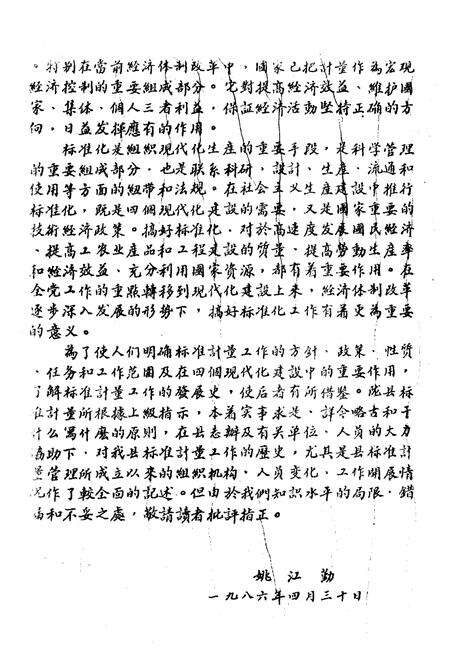 。特别在當前經济体制改革中，國家已把計量作為宏观
經济控制的重要組成部分。它對提高經济效益、維护國
家、集体、個人三者利益，保証經济活動堅持正确的方
向，日益发揮應有的作用。
标准化是組織現代化生産的重要手段，是科学管理
的重要組成部分，也是联系科研，設計、生産、流通和
使用等方面的紐带和法規。在社会主义生産建設中推行
标准化，既是四個現代化建設的需要，又是國家重要的
技術經济政策。搞好标准化，对於高速度发展國民經济
、提高工农业産品和工程建設的質量、提高勞動生産率
和經济效益、充分利用國家資源，都有着重要作用。在
全党工作的重點轉移到現代化建設上来，經济体制改革
逐步深入发展的形势下，搞好标准化工作有着更為重要
的意义。
為了使人们明确标准計量工作的方針、政策、性質
、任务和工作范围及在四個現代化建設中的重要作用，
了解标准計量工作的發展史，使后者有所借鑒。陇县标
准計量所根據上級指示，本着实事求是、詳今略古和干
什么寫什麽的原則，在县志辦及有关单位、人員的大力
協助下，对我县标准計量工作的歷史，尤其是县标准計
量管理所成立以来的組織机构、人員变化、工作開展情
况作了較全面的記述。但由於我們知識水平的局限，錯
漏和不妥之處，敬請讀者批評指正。
姚江勤
一九八六年四月三十日